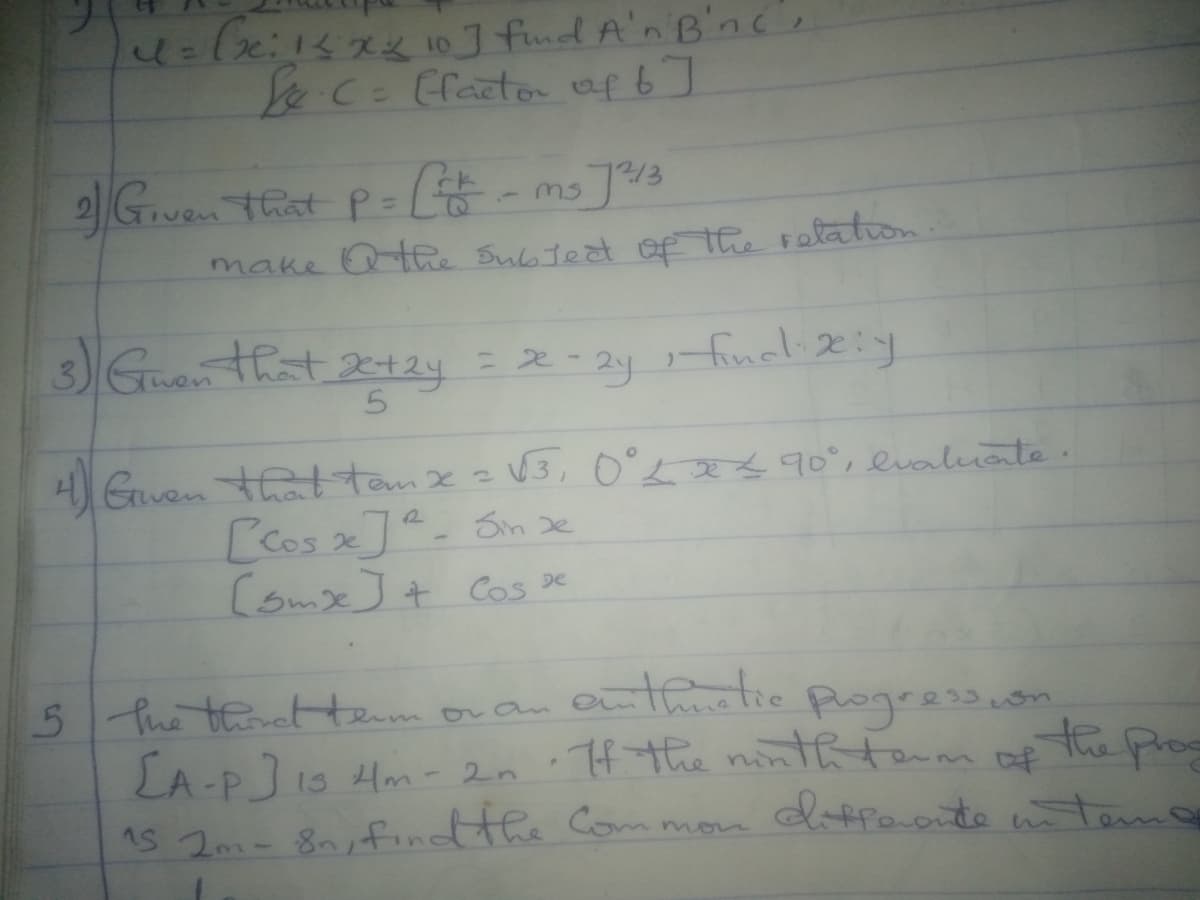 U = [x: 1 ≤ x ≤ 10] find A'n B'n C',
C = [factor of 6]
2) Given that P = [rk/Q - ms]^2/3
make Q the subject of the relation.
3) Given that x+2y/5 = x - 2y, find x:y
4) Given that tan x = √3, 0° ≤ x ≤ 90°, evaluate.
[Cos x]² - Sin x
[Sinx] + Cos x
5 The third term an arithmetic progression
[A-P] is 4m - 2n. If the ninth term of the prog
is 2m - 8n, find the Common in